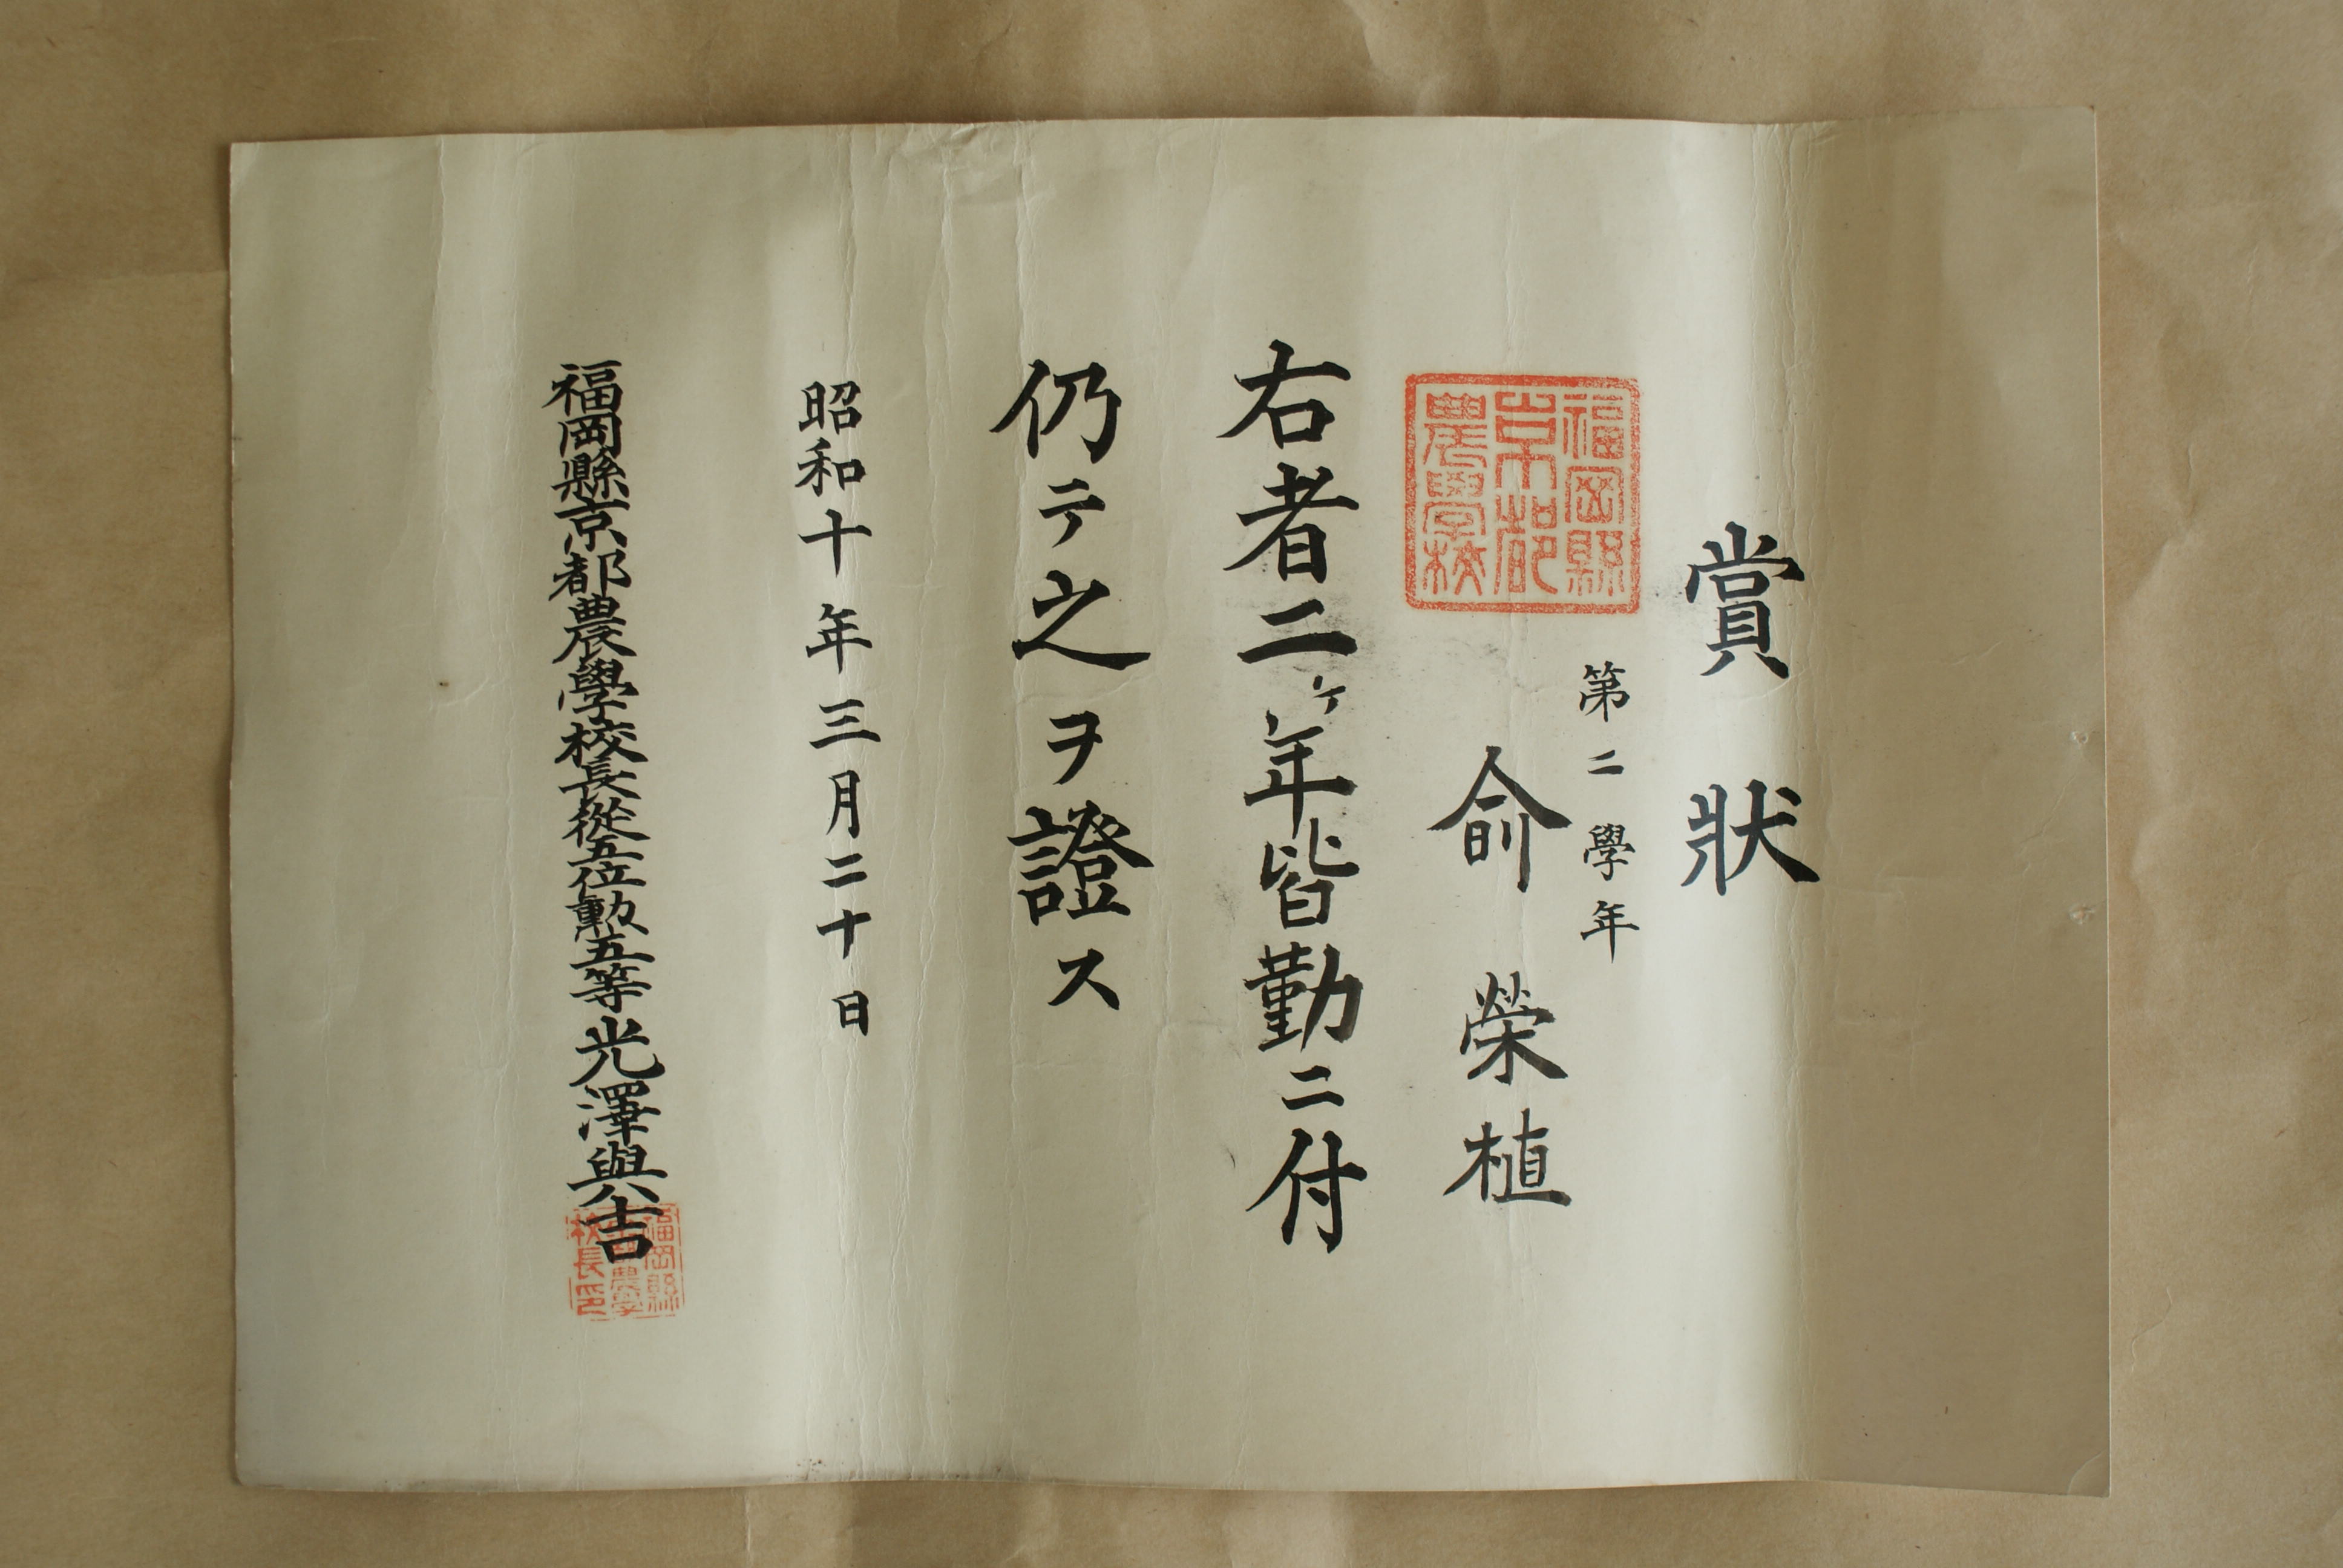 賞狀
第二學年
俞榮植
右者二ヶ年皆勤ニ付
仍テ之ヲ證ス
昭和十年三月二十日
福岡縣京都農學校長從五位勳五等光澤與吉
福岡縣
京都
農學校
福岡縣
農學
校長印